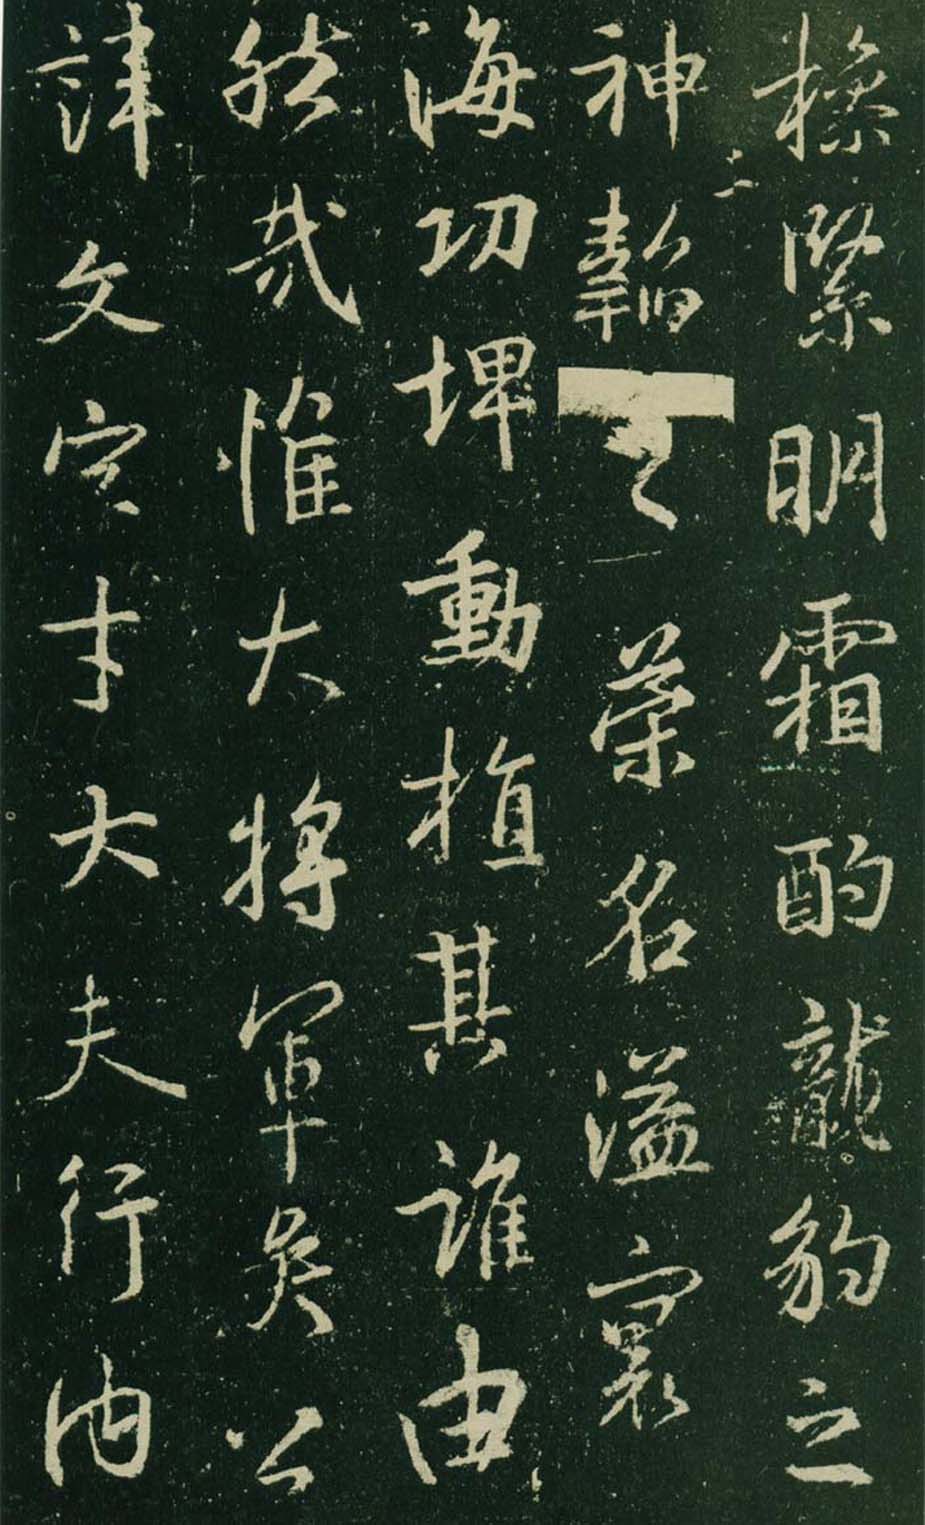 操緊明霜酌龍豹之
神韜之榮名溢寰
海功埤動植其誰由
然哉惟大將軍吳公
諱文字才大夫行內